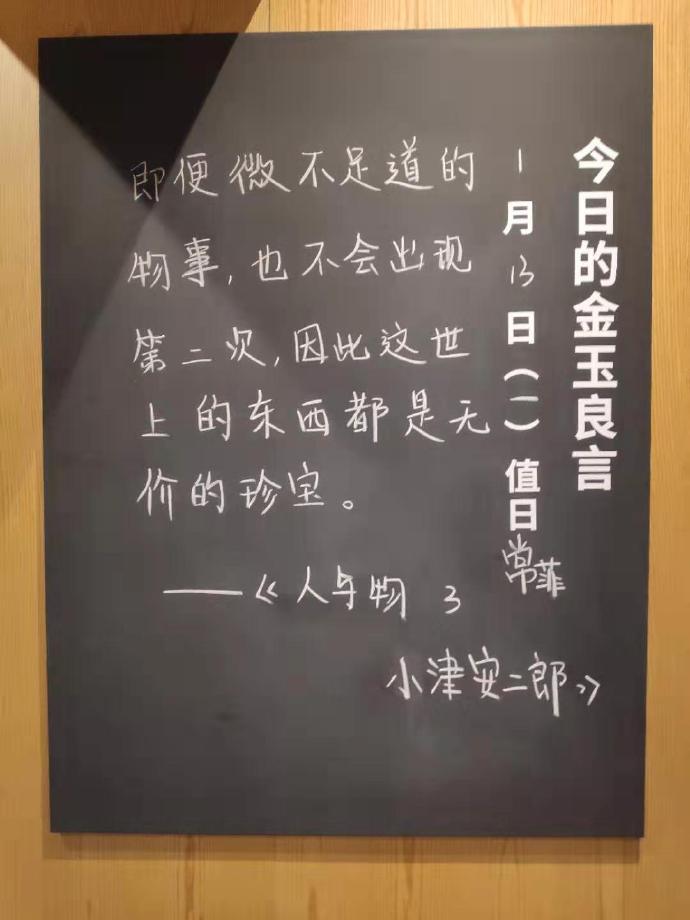 今日的金玉良言
1月13日(一)值日常菲
即便微不足道的
物事,也不会出现
第二次,因此这世
上的东西都是无
价的珍宝。
——《人与物 3
小津安二郎》